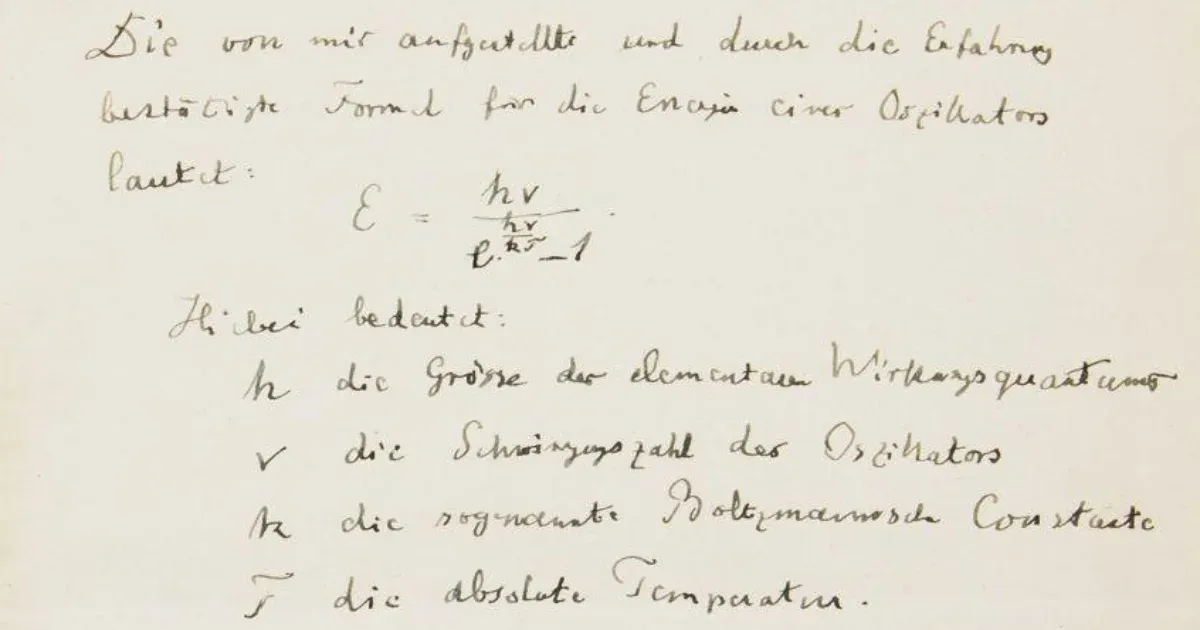 Die von mir aufgestellte und durch die Erfahrung
bestätigte Formel für die Energie eines Oszillators
lautet:
ℰ = hν / (e^(hν/kT) − 1).
Hiebei bedeutet:
h die Grösse des elementaren Wirkungsquantums
ν die Schwingungszahl des Oszillators
k die sogenannte Boltzmannsche Constante
T die absolute Temperatur.